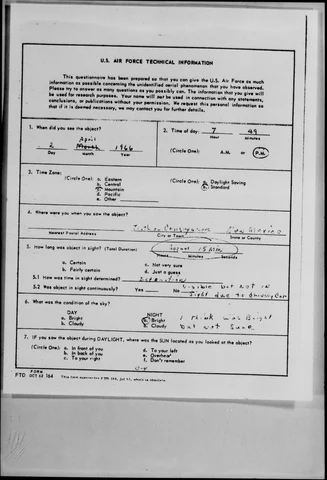 U.S. AIR FORCE TECHNICAL INFORMATION
This questionnaire has been prepared so that you can give the U.S. Air Force as much
information as possible concerning the unidentified aerial phenomenon that you have observed.
Please try to answer as many questions as you possibly can. The information that you give will
be used for research purposes. Your name will not be used in connection with any statements,
conclusions, or publications without your permission. We request this personal information so
that if it is deemed necessary, we may contact you for further details.
1. When did you see the object?
April
2 March 1966
Day Month Year
2. Time of day: 7 49
Hour Minutes
(Circle One): A.M. or P.M.
3. Time Zone:
(Circle One): a. Eastern
b. Central
c. Mountain
d. Pacific
e. Other
(Circle One): a. Daylight Saving
b. Standard
4. Where were you when you saw the object?
New Mexico
Nearest Postal Address City or Town State or County
5. How long was object in sight? (Total Duration) 15 Min
Hours Minutes Seconds
a. Certain c. Not very sure
b. Fairly certain d. Just a guess
5.1 How was time in sight determined?
5.2 Was object in sight continuously? Yes No Visible but not in
sight due to
6. What was the condition of the sky?
DAY NIGHT
a. Bright a. Bright I think was Bright
b. Cloudy b. Cloudy but not sure
7. IF you saw the object during DAYLIGHT, where was the SUN located as you looked at the object?
(Circle One): a. In front of you d. To your left
b. In back of you e. Overhead
c. To your right f. Don't remember
FORM
FTD OCT 62 164 This form supersedes FTD 164, Jul 61, which is obsolete.